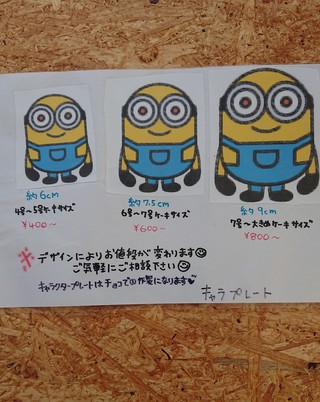 約6cm
4号〜5号ケーキサイズ
¥400〜
約7.5cm
6号〜7号ケーキサイズ
¥600〜
約9cm
7号〜大きめケーキサイズ
¥800〜
※デザインによりお値段が変わります
ご気軽にご相談下さい
キャラクタープレートはチョコでの作製になります
キャラプレート